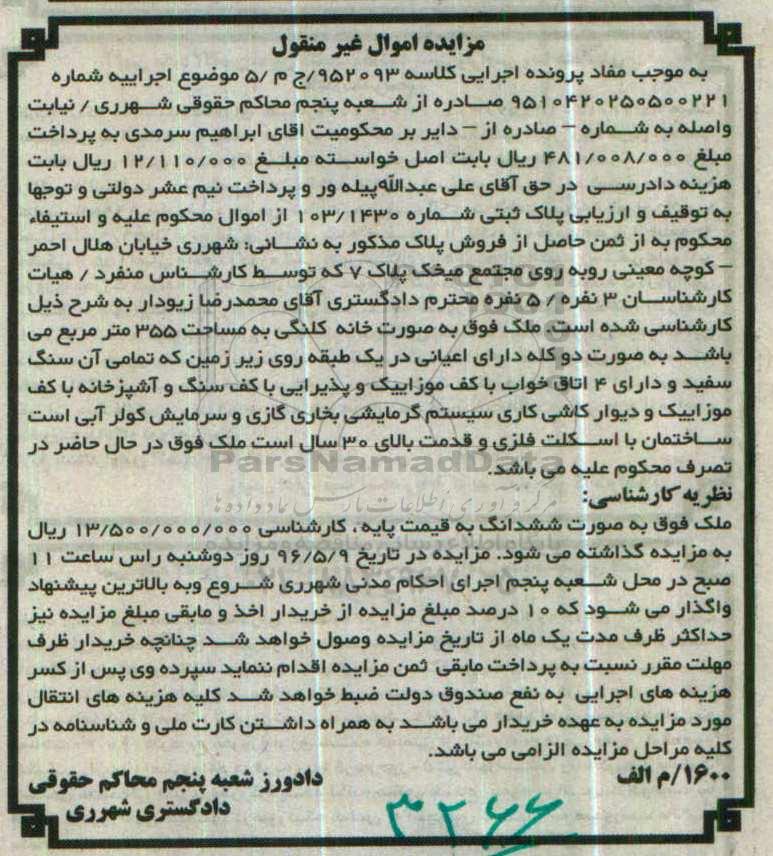 مزایده اموال غیر منقول
به موجب مفاد پرونده اجرایی کلاسه ۹۵۲۰۹۳/ج م /۵ موضوع اجراییه شماره
۹۵۱۰۴۲۰۲۵۰۵۰۰۲۲۱ صادره از شعبه پنجم محاکم حقوقی شهرری / نیابت
واصله به شماره – صادره از – دایر بر محکومیت اقای ابراهیم سرمدی به پرداخت
مبلغ ۴۸۱/۰۰۸/۰۰۰ ریال بابت اصل خواسته مبلغ ۱۲/۱۱۰/۰۰۰ ریال بابت
هزینه دادرسی در حق آقای علی عبداللهپیله ور و پرداخت نیم عشر دولتی و توجها
به توقیف و ارزیابی پلاک ثبتی شماره ۱۰۳/۱۴۳۰ از اموال محکوم علیه و استیفاء
محکوم به از ثمن حاصل از فروش پلاک مذکور به نشانی: شهرری خیابان هلال احمر
– کوچه معینی روبه روی مجتمع میخک پلاک ۷ که توسط کارشناس منفرد / هیات
کارشناسان ۳ نفره / ۵ نفره محترم دادگستری آقای محمدرضا زیودار به شرح ذیل
کارشناسی شده است. ملک فوق به صورت خانه کلنگی به مساحت ۳۵۵ متر مربع می
باشد به صورت دو کله دارای اعیانی در یک طبقه روی زیر زمین که تمامی آن سنگ
سفید و دارای ۴ اتاق خواب با کف موزاییک و پذیرایی با کف سنگ و آشپزخانه با کف
موزاییک و دیوار کاشی کاری سیستم گرمایشی بخاری گازی و سرمایش کولر آبی است
ساختمان با اسکلت فلزی و قدمت بالای ۳۰ سال است ملک فوق در حال حاضر در
تصرف محکوم علیه می باشد.
ParsNamadData
نظریه کارشناسی:
مرکز فرآوری اطلاعات پارس نماد داده ها
ملک فوق به صورت ششدانگ به قیمت پایه ، کارشناسی ۱۳/۵۰۰/۰۰۰/۰۰۰ ریال
به مزایده گذاشته می شود. مزایده در تاریخ ۹۶/۵/۹ روز دوشنبه راس ساعت ۱۱
صبح در محل شعبه پنجم اجرای احکام مدنی شهرری شروع وبه بالاترین پیشنهاد
واگذار می شود که ۱۰ درصد مبلغ مزایده از خریدار اخذ و مابقی مبلغ مزایده نیز
حداکثر ظرف مدت یک ماه از تاریخ مزایده وصول خواهد شد چنانچه خریدار ظرف
مهلت مقرر نسبت به پرداخت مابقی ثمن مزایده اقدام ننماید سپرده وی پس از کسر
هزینه های اجرایی به نفع صندوق دولت ضبط خواهد شد کلیه هزینه های انتقال
مورد مزایده به عهده خریدار می باشد به همراه داشتن کارت ملی و شناسنامه در
کلیه مراحل مزایده الزامی می باشد.
۱۶۰۰/م الف
دادورز شعبه پنجم محاکم حقوقی
دادگستری شهرری
۳۲۶۶